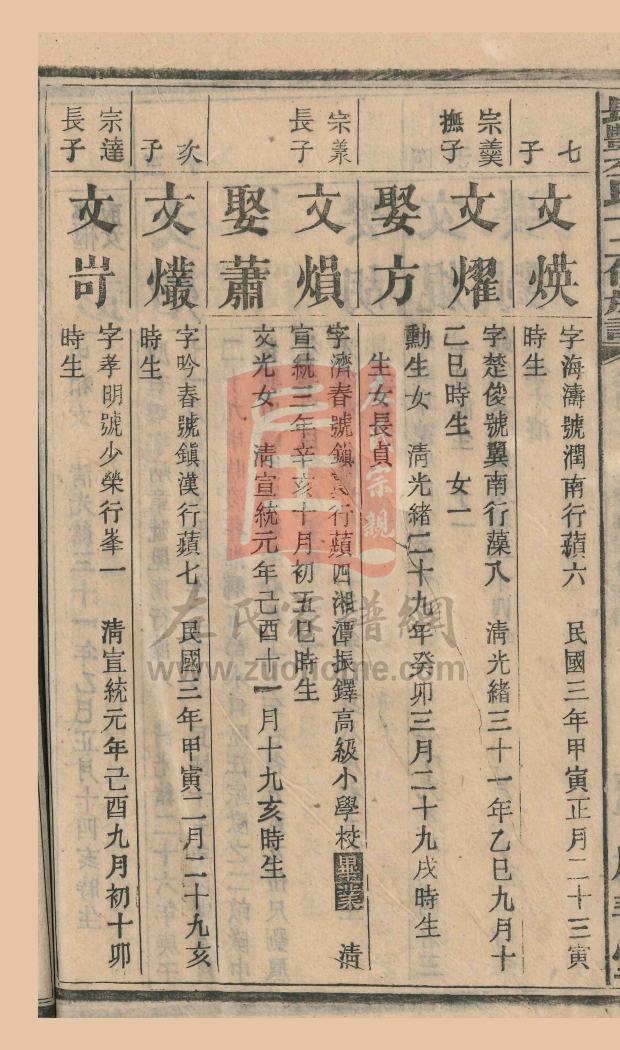 七子
文煐
字海濤號潤南行蘋六 民國三年甲寅正月二十三寅
時生
宗羲撫子
文燿
字楚俊號翼南行藻八 清光緒三十一年乙巳九月十
二巳時生 女一
娶方
勳生女 清光緒二十九年癸卯三月二十九戌時生
生女長貞
宗羲長子
文熉
字濟春號鎮 行蘋四湘潭振鐸高級小學校畢業 清
宣統三年辛亥十月初五巳時生
娶蕭
文光女 清宣統元年己酉十一月十九亥時生
次子
文爜
字吟春號鎮漢行蘋七 民國三年甲寅二月二十九亥
時生
宗達長子
文岢
字孝明號少榮行峯一 清宣統元年己酉九月初十卯
時生
左氏家譜網
www.zuohome.com
宗親